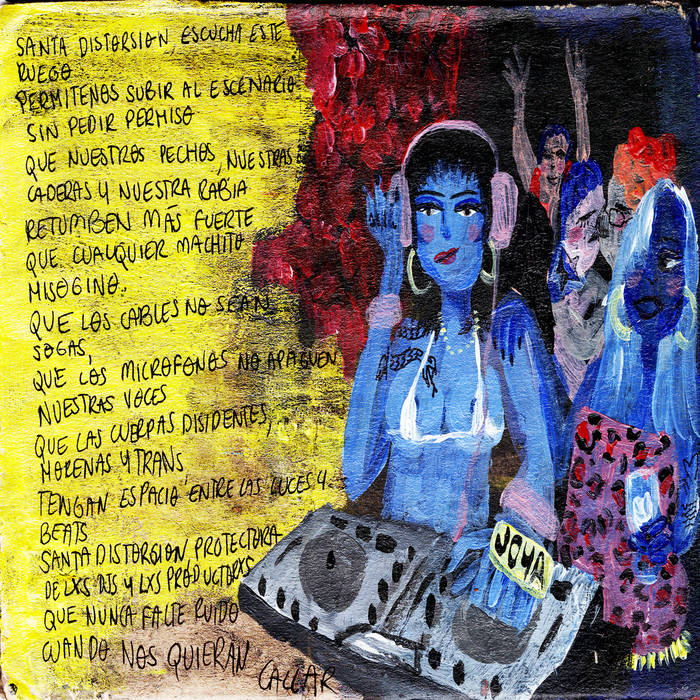 SANTA DISTORSION, ESCUCHA ESTE
RUEGO
PERMITENOS SUBIR AL ESCENARIO
SIN PEDIR PERMISO
QUE NUESTROS PECHOS, NUESTRAS
CADERAS Y NUESTRA RABIA
RETUMBEN MÁS FUERTE
QUE CUALQUIER MACHITO
MISOGINO.
QUE LOS CABLES NO SEAN
SOGAS,
QUE LOS MICROFONOS NO APAGUEN
NUESTRAS VOCES
QUE LAS CUERPAS DISIDENTES,
MORENAS Y TRANS
TENGAN ESPACIO ENTRE LAS LUCES Y
BEATS
SANTA DISTORSION PROTECTORA
DE LXS DJS Y LXS PRODUCTORXS
QUE NUNCA FALTE RUIDO
CUANDO NOS QUIERAN CALLAR
JOYA